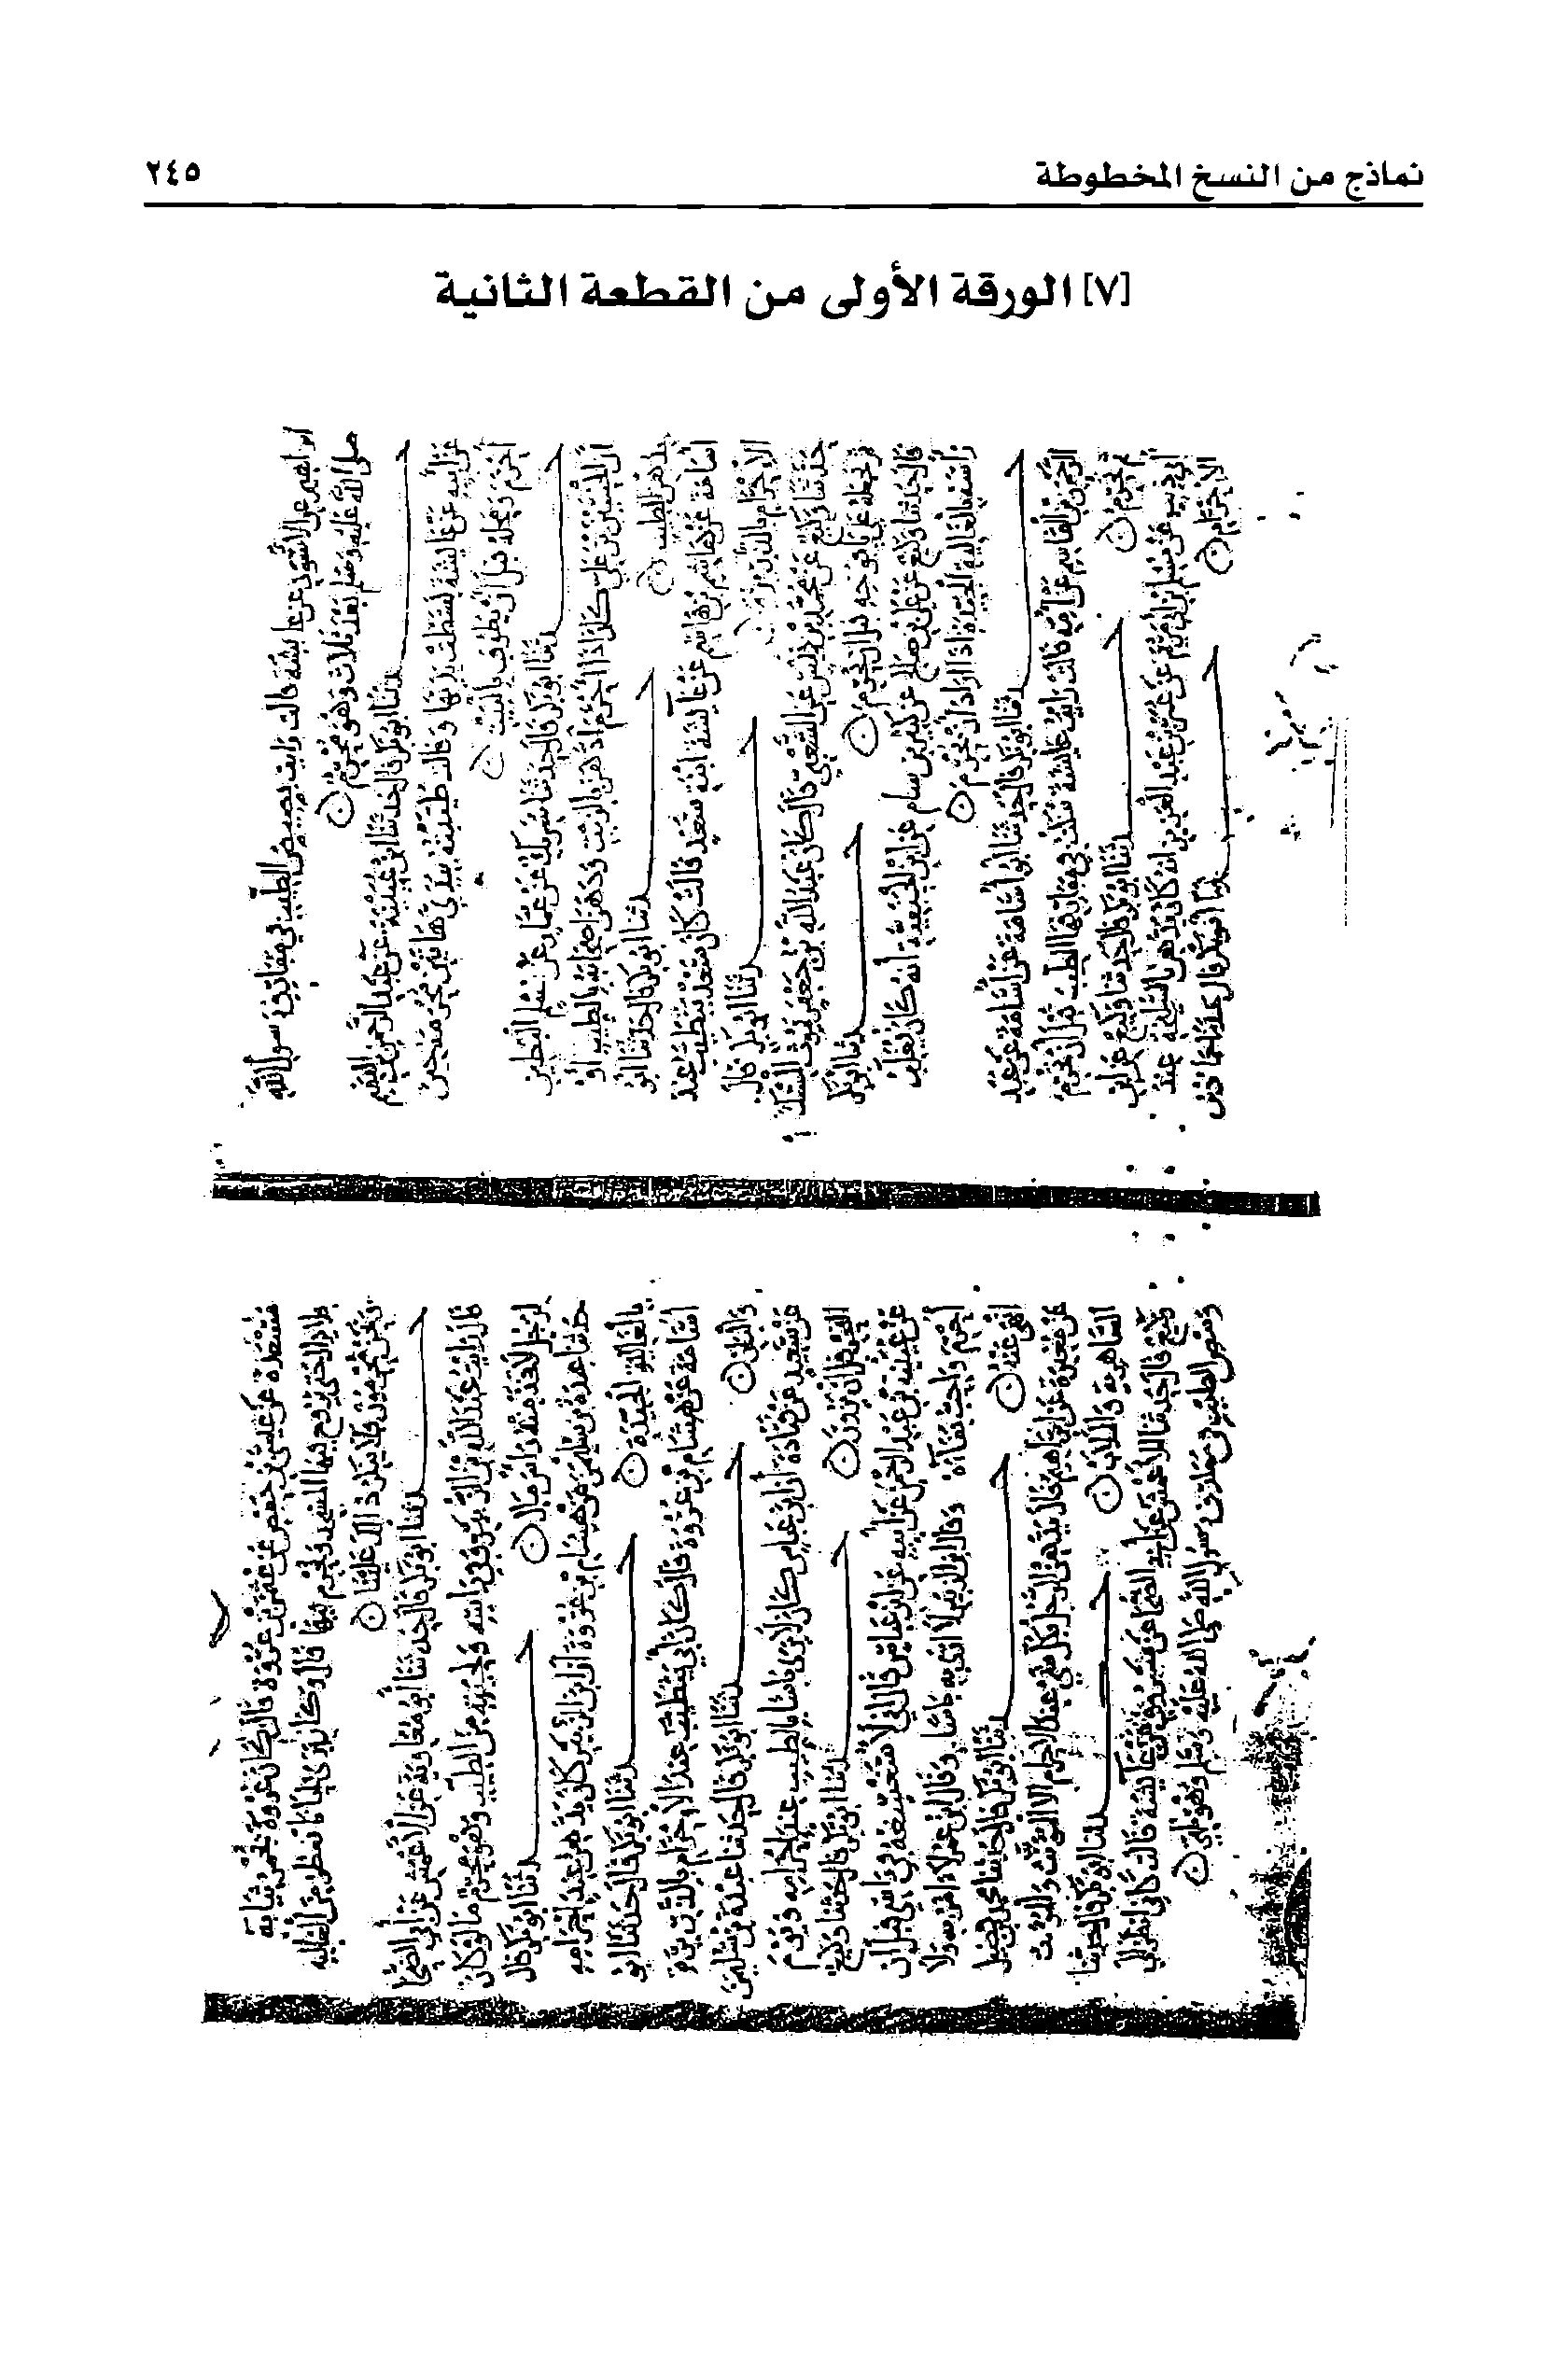 نماذج من النسخ المخطوطة
٢٤٥
[٧] الورقة الأولى من القطعة الثانية
ابراهيم عن الاسود عن عائشة قالت رايت وبيص الطيب في مفارق رسول الله
صلى الله عليه وسلم بعد ثلاث وهو محرم
حدثنا ابو بكر قال حدثنا ابن عيينة عن عبد الرحمن بن القسم
عن ابيه عن عائشة بسطت يديها وقالت طيبته بيدي هاتين لحرمه حين
احرم ولحله قبل ان يطوف بالبيت
حدثنا ابو بكر قال حدثنا شريك عن عمار عن مسلم البطين
ان الحسين بن علي كان اذا احرم ادهن بالزيت ودهن اصحابه بالطيب او
يدهن بالطيب حدثنا ابو بكر قال حدثنا ابو
اسامة عن هاشم بن هاشم عن عائشة ابنة سعد قالت كان سعد يتطيب عند
الاحرام بالذريرة حدثنا ابو بكر قال
حدثنا وكيع عن محمد بن قيس عن الشعبي قال كان عبد الله بن جعفر يموث المسك
ثم يجعله على يافوخه قبل ان يحرم حدثنا ابو بكر
قال حدثنا وكيع عن علي بن صالح عن كثير بن سام عن ابن الحنفية انه كان يغلف
راسه بالغالية الجيدة اذا اراد ان يحرم
حدثنا ابو بكر قال حدثنا ابو اسامة عن اسامة عن عبد
الرحمن بن القاسم عن امه قالت رايت عائشة تنكث في مفارقها الطيب قبل ان تحرم
ثم تحرم حدثنا ابو بكر قال حدثنا وكيع عن ابن
ابي ذيب عن مسلم بن ابي مريم عن عمر بن عبد العزيز انه كان يدهن بالسليخة عند
الاحرام حدثنا ابو بكر قال حدثنا حماد بن
مسعدة عن عيسى بن حفص عن عثمن بن عروة قال كان عروة يجمر ثيابه
حتى يروح فيها الى المسجد ويحرم فيها قال وكان يرى لحانا تقطر من الغالية
ونحن محرمون فلا ينكر ذلك علينا
حدثنا ابو بكر قال حدثنا ابو معاوية عن الاعمش عن ابي الضحا
قال رايت عبد الله بن الزبير وفي راسه ولحيته من الطيب وهو محرم ما لو كان
لرجل لاتخذ منه راس مال حدثنا ابو بكر قال
حدثنا عبدة بن سليمن عن هشام بن عروة ان ابن الزبير كان يدهن عند احرامه
بالغالية الجيدة حدثنا ابو بكر قال حدثنا ابو
اسامة عن هشام بن عروة قال كان ابي يتطيب عند الاحرام بالذريرة
والبان حدثنا ابو بكر قال حدثنا عبدة بن سليمن
عن سعيد عن قتادة ان ابن عباس كان لا يرى باسا بالطيب عند احرامه ويوم
النحر قبل ان يزور حدثنا ابو بكر قال حدثنا وكيع
عن عيينة بن عبد الرحمن عن ابيه عن ابن عباس قال اني لاصعصعه في راسي قبل ان
احرم واحب بقاه وقال ابن الزبير لا ارى به باسا وقال ابن عمر لا امر به ولا
انهى عنه حدثنا ابو بكر قال حدثنا محمد بن فضيل
عن مغيرة عن ابراهيم قال يدهن الرجل بكل شي عند الاحرام الا
الشاهرية والملاب حدثنا ابو بكر قال حدثنا
وكيع قال حدثنا الاعمش عن ابي الضحا عن مسروق عن عائشة قالت كاني انظر الى
وبيص الطيب في مفارق رسول الله صلى الله عليه وسلم وهو يلبي